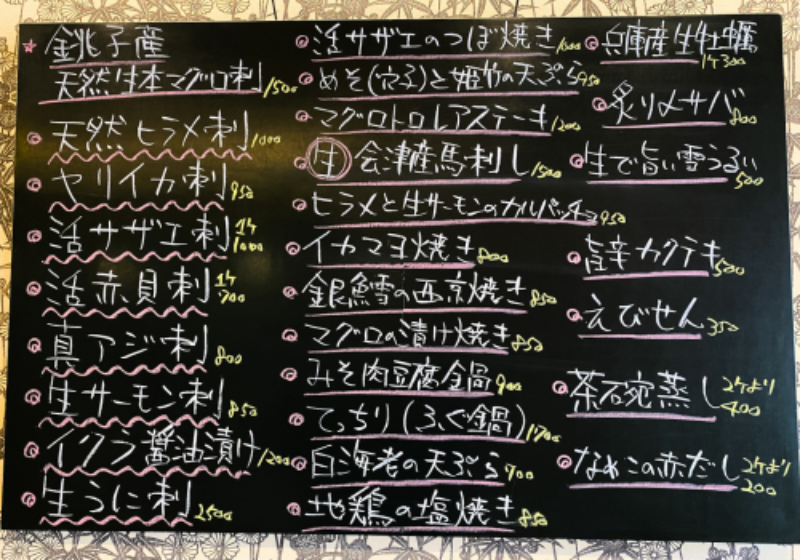 銚子産
天然生本マグロ刺 1500
天然ヒラメ刺 1000
ヤリイカ刺 950
活サザエ刺 1ケ 1000
活赤貝刺 1ケ 700
真アジ刺 800
生サーモン刺 850
イクラ醤油漬け 1200
生うに刺 2500
活サザエのつぼ焼き 1000
めそ(穴子)と姫竹の天ぷら 950
マグロトロレアステーキ 1200
生 会津産馬刺し 1500
ヒラメと生サーモンのカルパッチョ 950
イカマヨ焼き 800
銀鱈の西京焼き 850
マグロの漬け焼き 850
みそ肉豆腐鍋 900
てっちり(ふぐ鍋) 1700
白海老の天ぷら 900
地鶏の塩焼き 850
兵庫産生牡蠣
1ケ300
炙り〆サバ 800
生で旨い雪うるい 500
旨辛カクテキ 500
えびせん 350
茶碗蒸し 2ケより 400
なめこの赤だし 2ケより 200